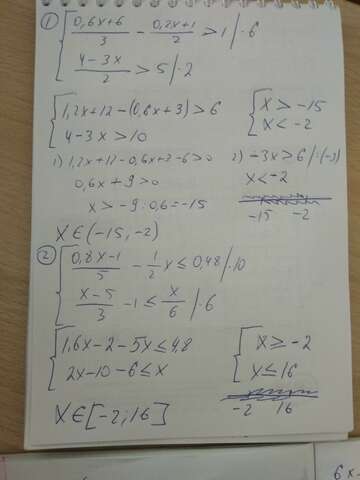 1) { (0,6x+6)/3 - (0,2x+1)/2 > 1 |·6
(4-3x)/2 > 5 |·2
{ 1,2x+12-(0,6x+3)>6
4-3x>10
{ x > -15
x < -2
1) 1,2x+12-0,6x+2-6>0
0,6x+9>0
x > -9:0,6=-15
2) -3x>6 |:(-3)
x<-2
-15 -2
x∈(-15,-2)
2) { (0,8x-1)/5 - 1/2 x ≤ 0,48 |·10
(x-5)/3 - 1 ≤ x/6 |·6
{ 1,6x-2-5x≤4,8
2x-10-6≤x
{ x ≥ -2
x ≤ 16
-2 16
x∈[-2;16]
6x-